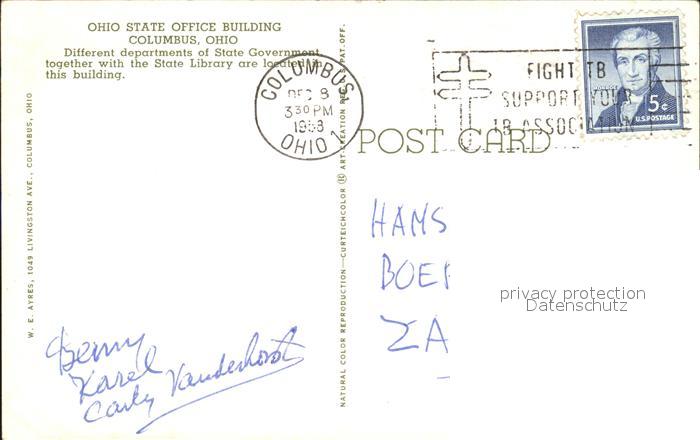 OHIO STATE OFFICE BUILDING
COLUMBUS, OHIO
Different departments of State Government,
together with the State Library are located in
this building.
COLUMBUS
DEC 8
3 30 PM
1958
OHIO 1
FIGHT TB
SUPPORT YOUR
TB ASSOCIATION
5¢
U.S. POSTAGE
POST CARD
W. E. AYRES, 1049 LIVINGSTON AVE., COLUMBUS, OHIO
NATURAL COLOR REPRODUCTION—CURTEICHCOLOR ® ART-CREATION REG. U.S. PAT. OFF.
HANS
BOE
ZA
privacy protection
Datenschutz
Karel
Vanderhorst